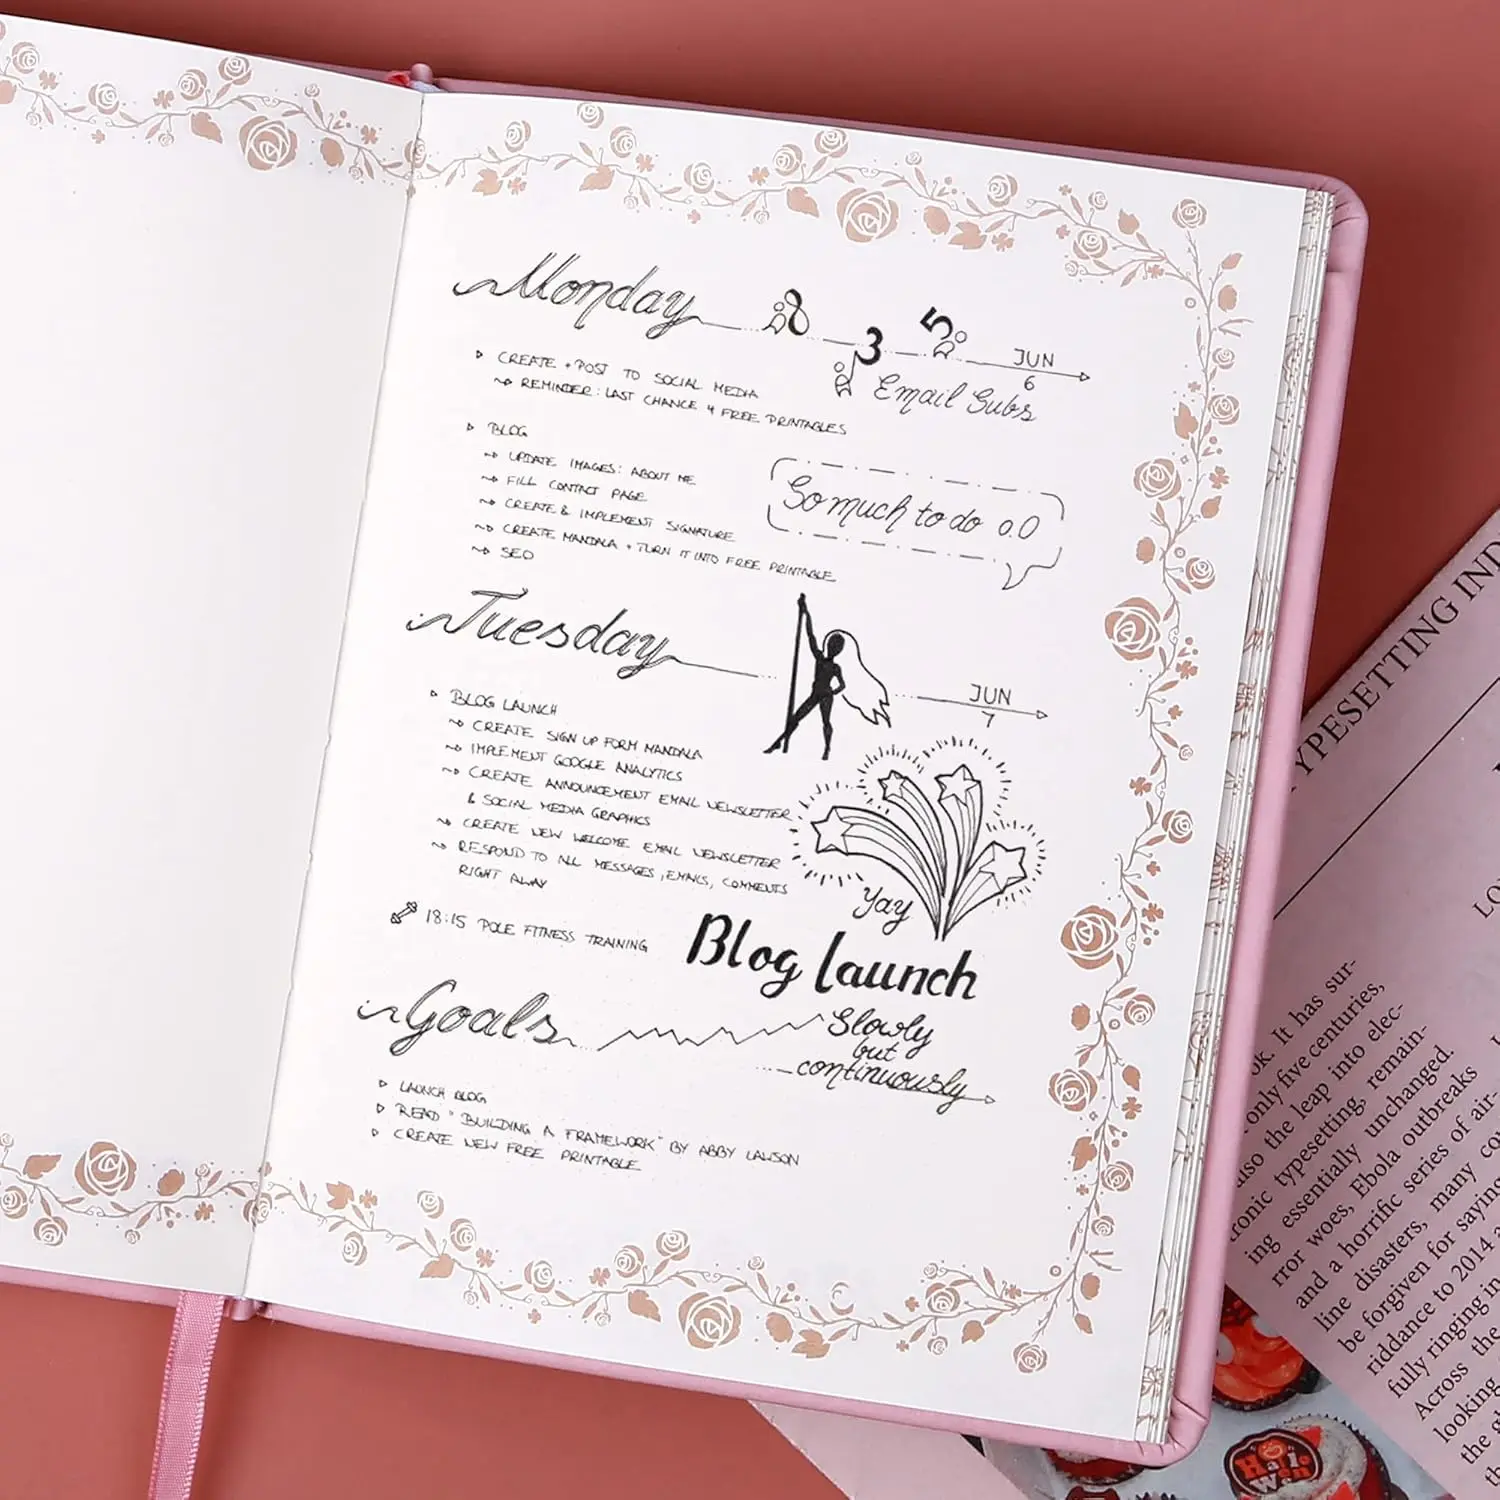 Monday
8 3 5
JUN
6
Email Subs
CREATE + POST TO SOCIAL MEDIA
REMINDER: LAST CHANCE 4 FREE PRINTABLES
BLOG
UPDATE IMAGES: ABOUT ME
FILL CONTACT PAGE
CREATE & IMPLEMENT SIGNATURE
CREATE MANDALA + TURN IT INTO FREE PRINTABLE
SEO
So much to do o.O
Tuesday
JUN
7
BLOG LAUNCH
CREATE SIGN UP FORM MANDALA
IMPLEMENT GOOGLE ANALYTICS
CREATE ANNOUNCEMENT EMAIL NEWSLETTER
& SOCIAL MEDIA GRAPHICS
CREATE NEW WELCOME EMAIL NEWSLETTER
RESPOND TO ALL MESSAGES, EMAILS, COMMENTS
RIGHT AWAY
18:15 POLE FITNESS TRAINING
Yay
Blog launch
Goals
Slowly
but
continuously
LAUNCH BLOG
READ "BUILDING A FRAMEWORK" BY ABBY LAWSON
CREATE NEW FREE PRINTABLE
TYPESETTING IND
LO
ok. It has sur-
only five centuries,
also the leap into elec-
tronic typesetting, remain-
ing essentially unchanged.
rror woes, Ebola outbreaks
and a horrific series of air-
line disasters, many co
be forgiven for saying
riddance to 2014 a
fully ringing in
Across the
looking
the
st
Hallo
Ween